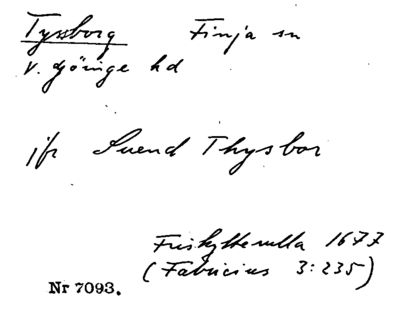 Tyssborg Finja sn
V. Göinge hd
jfr Svend Thysbor
Friskytterulla 1677
(Fabricius 3:235)
Nr 7093.